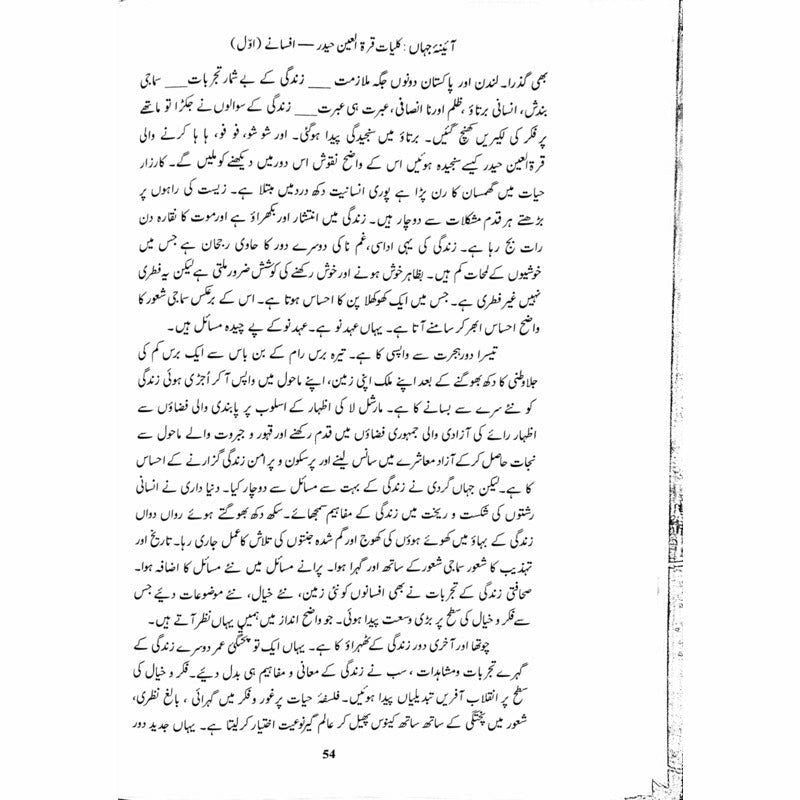 آئینۂ جہاں : کلیات قرۃ العین حیدر — افسانے (اوّل)
بھی گذرا۔ لندن اور پاکستان دونوں جگہ ملازمت ___ زندگی کے بے شمار تجربات___ سماجی
بندش، انسانی برتاؤ، ظلم اور نا انصافی، عبرت ہی عبرت___ زندگی کے سوالوں نے جکڑا تو ماتھے
پر فکر کی لکیریں کھنچ گئیں۔ برتاؤ میں سنجیدگی پیدا ہوگئی۔ اور شو شو، فو فو، ہا ہا کرنے والی
قرۃ العین حیدر کیسے سنجیدہ ہوئیں اس کے واضح نقوش اس دور میں دیکھنے کو ملیں گے۔ کارزار
حیات میں گھمسان کا رن پڑا ہے پوری انسانیت دکھ درد میں مبتلا ہے۔ زیست کی راہوں پر
بڑھتے ہر قدم مشکلات سے دوچار ہیں۔ زندگی میں انتشار اور بکھراؤ ہے اور موت کا نقارہ دن
رات بج رہا ہے۔ زندگی کی یہی اداسی، غم نا کی دوسرے دور کا حاوی رجحان ہے جس میں
خوشیوں کے لمحات کم ہیں۔ بظاہر خوش ہونے اور خوش رکھنے کی کوشش ضرور ملتی ہے لیکن یہ فطری
نہیں غیر فطری ہے۔ جس میں ایک کھوکھلا پن کا احساس ہوتا ہے۔ اس کے برعکس سماجی شعور کا
واضح احساس ابھر کر سامنے آتا ہے۔ یہاں عہد نو ہے۔ عہد نو کے پے چیدہ مسائل ہیں۔
تیسرا دور ہجرت سے واپسی کا ہے۔ تیرہ برس رام کے بن باس سے ایک برس کم کی
جلاوطنی کا دکھ بھوگنے کے بعد اپنے ملک اپنی زمین، اپنے ماحول میں واپس آ کر اُجڑی ہوئی زندگی
کو نئے سرے سے بسانے کا ہے۔ مارشل لا کی اظہار کے اسلوب پر پابندی والی فضاؤں سے
اظہار رائے کی آزادی والی جمہوری فضاؤں میں قدم رکھنے اور قہور و جبروت والے ماحول سے
نجات حاصل کر کے آزاد معاشرے میں سانس لینے اور پرسکون و پر امن زندگی گزارنے کے احساس
کا ہے۔ لیکن جہاں گردی نے زندگی کے بہت سے مسائل سے دوچار کیا۔ دنیا داری نے انسانی
رشتوں کی شکست و ریخت میں زندگی کے مفاہیم سمجھائے۔ سکھ دکھ بھوگتے ہوئے رواں دواں
زندگی کے بہاؤ میں کھوئے ہوؤں کی کھوج اور گم شدہ جنتوں کی تلاش کا عمل جاری رہا۔ تاریخ اور
تہذیب کا شعور سماجی شعور کے ساتھ اور گہرا ہوا۔ پرانے مسائل میں نئے مسائل کا اضافہ ہوا۔
صحافتی زندگی کے تجربات نے بھی افسانوں کو نئی زمین، نئے خیال، نئے موضوعات دیے جس
سے فکر و خیال کی سطح پر بڑی وسعت پیدا ہوئی۔ جو واضح انداز میں ہمیں یہاں نظر آتے ہیں۔
چوتھا اور آخری دور زندگی کے ٹھہراؤ کا ہے۔ یہاں ایک تو پختگیٔ عمر دوسرے زندگی کے
گہرے تجربات و مشاہدات، سب نے زندگی کے معانی و مفاہیم ہی بدل دیے۔ فکر و خیال کی
سطح پر انقلاب آفریں تبدیلیاں پیدا ہوئیں۔ فلسفۂ حیات پر غور و فکر میں گہرائی، بالغ نظری،
شعور میں پختگی کے ساتھ ساتھ کینوس پھیل کر عالم گیر نوعیت اختیار کر لیتا ہے۔ یہاں جدید دور
54